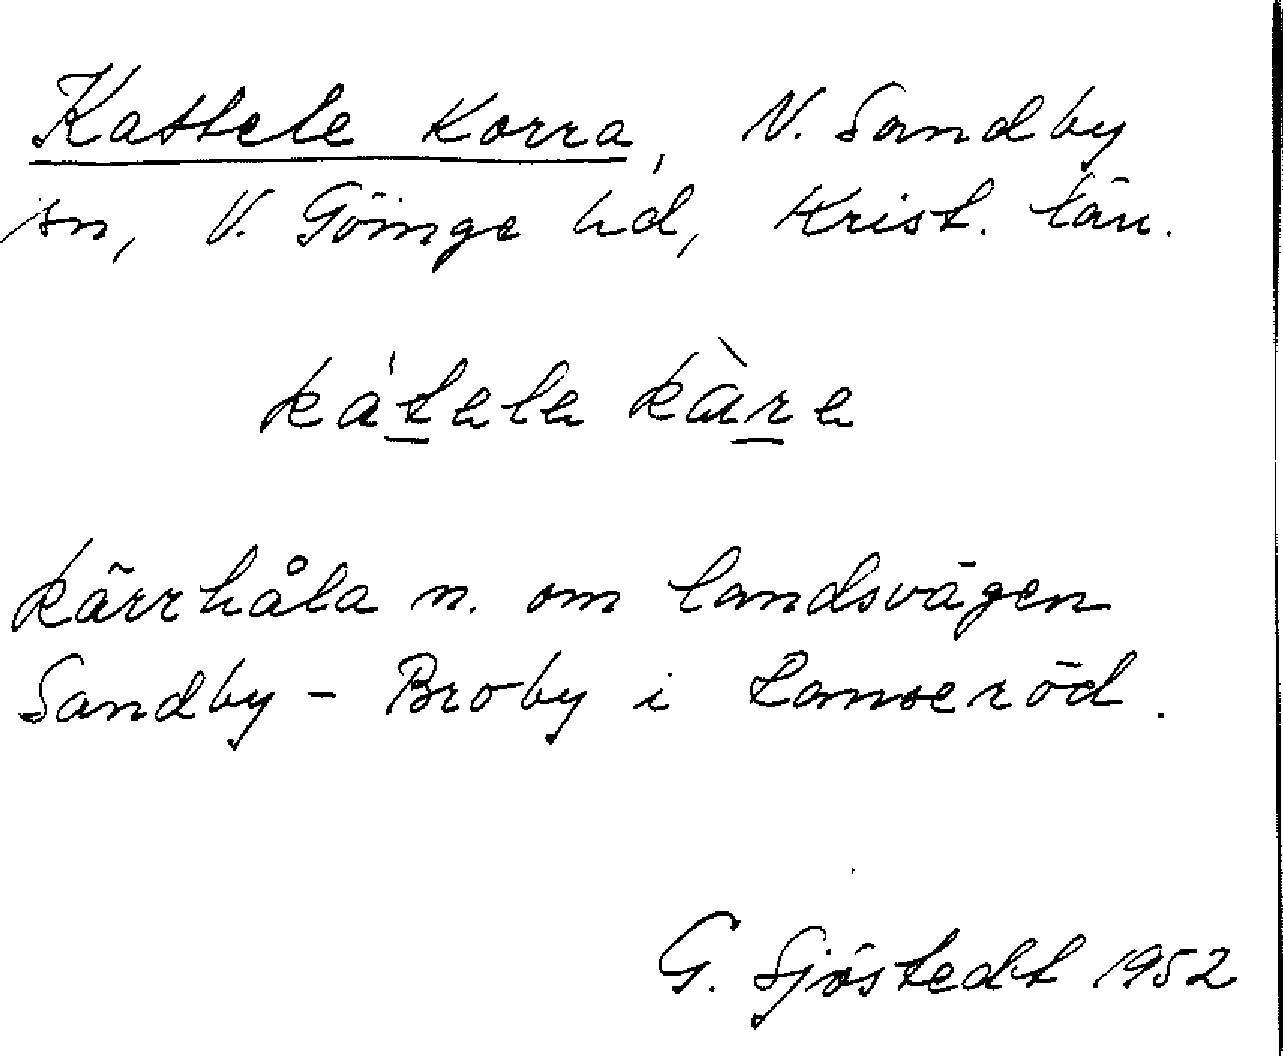 Kattele Korra, N. Sandby
sn, V. Göinge hd, Krist. län.
kátala kàra
Kärrhåla n. om landsvägen
Sandby - Broby i Lanseröd.
G. Sjöstedt 1952